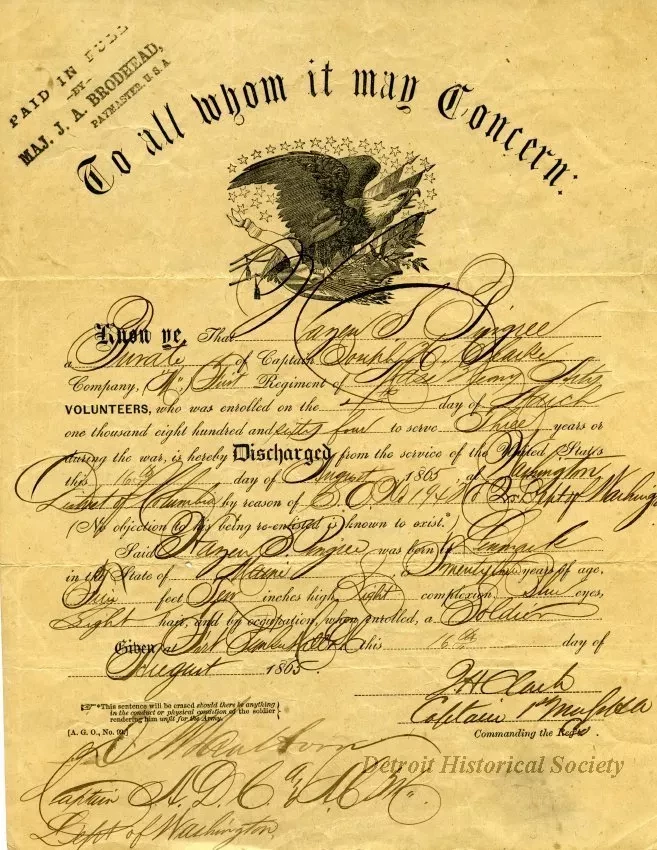 PAID IN FULL
-BY-
MAJ. J. A. BRODHEAD,
PAYMASTER, U.S.A
To all whom it may Concern:
Know ye, That Hazen S Pingree
a Private of Captain
Company, "M," First Regiment of Mass Heavy Arty
VOLUNTEERS, who was enrolled on the day of March
one thousand eight hundred and sixty four to serve Three years or
during the war, is hereby Discharged from the service of the United States
this 16th day of August 1865, at Washington
District of Columbia by reason of Dept of Washington
(No objection to his being re-enlisted is known to exist.*)
Said Hazen S Pingree was born in Denmark
in the State of Maine, is years of age,
Five feet Ten inches high, Light complexion, Blue eyes,
Light hair, and by occupation, when enrolled, a Soldier
Given at Fort this 16th day of
August 1865.
*This sentence will be erased should there be anything
in the conduct or physical condition of the soldier
rendering him unfit for the Army.
[A. G. O., No. 99.]
Captain 1st
Commanding the Reg't.
Captain A.D.C.
Dept of Washington
Detroit Historical Society